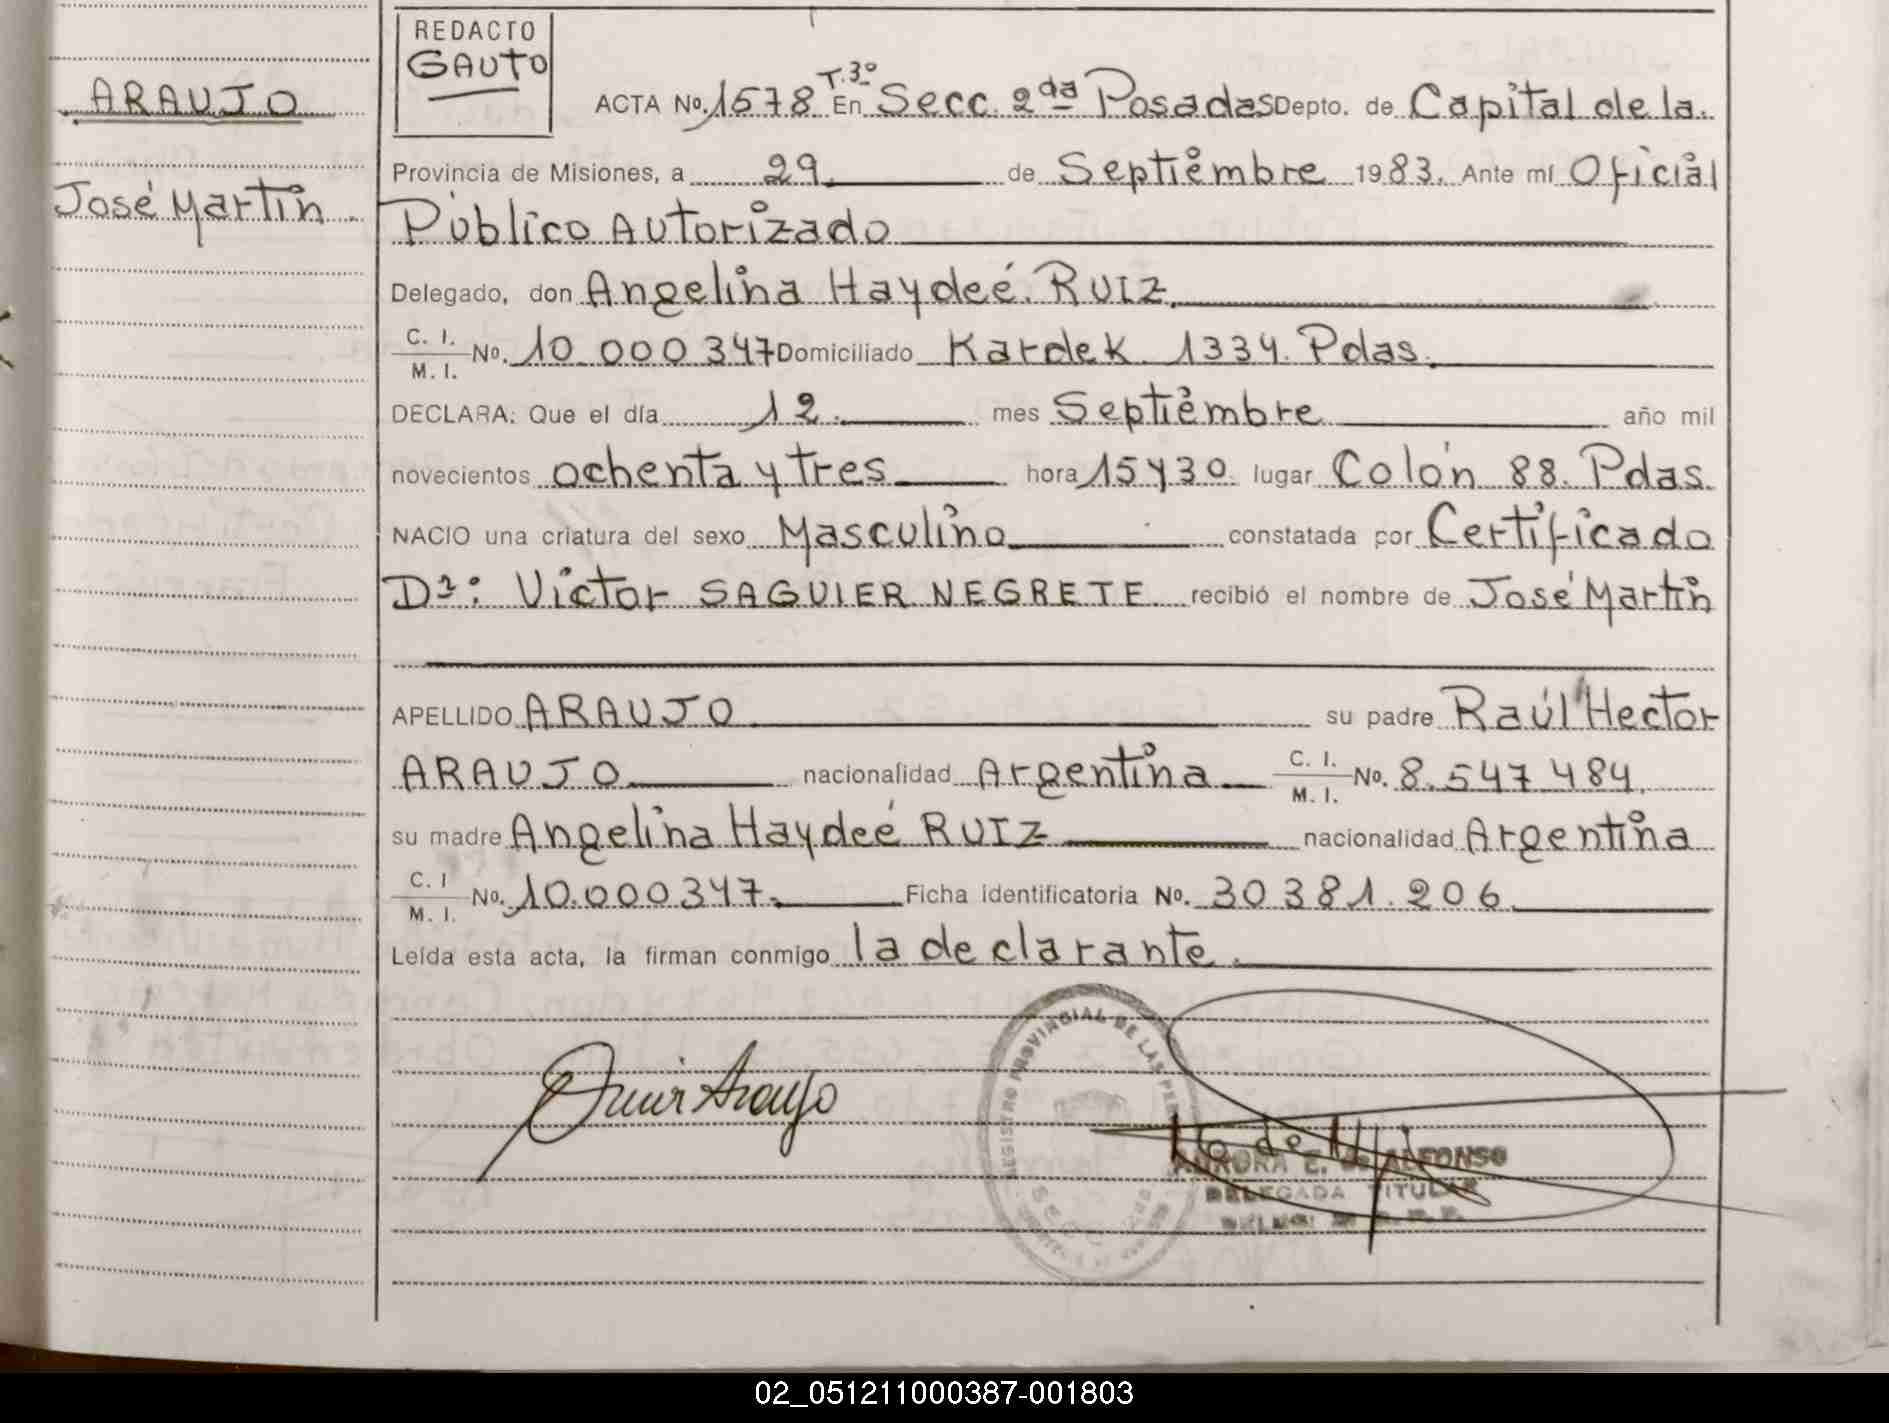 REDACTO
GAUTO
ARAUJO
José Martin.
ACTA No. 1578 T.3º En Secc. 2da Posadas Depto. de Capital de la.
Provincia de Misiones, a 29 de Septiembre 1983. Ante mí Oficial
Público Autorizado
Delegado, don Angelina Haydeé. RUIZ.
C. I. M. I. No. 10 000 347 Domiciliado Kardek 1334. Pdas.
DECLARA: Que el día 12. mes Septiembre año mil
novecientos ochenta y tres hora 15 y 30. lugar Colón 88. Pdas.
NACIO una criatura del sexo Masculino constatada por Certificado
Dr: Victor SAGUIER NEGRETE recibió el nombre de José Martin
APELLIDO ARAUJO su padre Raúl Hector
ARAUJO nacionalidad Argentina C. I. M. I. No. 8.547 484.
su madre Angelina Haydeé RUIZ nacionalidad Argentina
C. I M. I. No. 10.000347. Ficha identificatoria No. 30 381.206
Leída esta acta, la firman conmigo la declarante.
REGISTRO PROVINCIAL DE LAS PER
Araujo
AURORA E. de ALFONSO
DELEGADA TITULAR
02_051211000387-001803